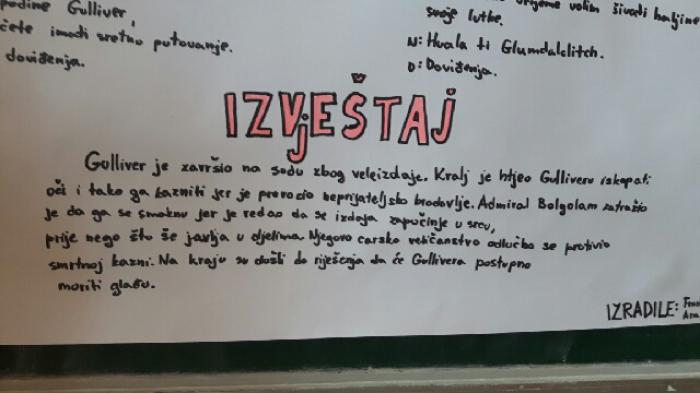 podine Gulliver,
ćete imati sretno putovanje.
doviđenja.
vrijeme volim šivati haljine
svoje lutke.
N: Hvala ti Glumdalclitch.
D: Doviđenja.
IZVJEŠTAJ
Gulliver je završio na sudu zbog veleizdaje. Kralj je htjeo Gulliveru iskopati
oči i tako ga kazniti jer je preročio neprijateljsko brodovlje. Admiral Bolgolam zatražio
je da ga se smaknu jer je redao da se izdaja započinje u srcu,
prije nego što še javlja u djelima. Njegovo carsko veličanstvo odlučbo se protivio
smrtnoj kazni. Na kraju su došli do riješenja da će Gullivera postupno
moriti glađu.
IZRADILE: